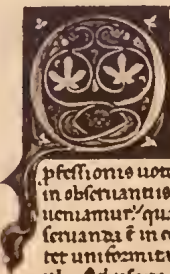 pfessionis uote
in obseruantiis
ueniamur: qua
seruanda ē in c
tet uniformit